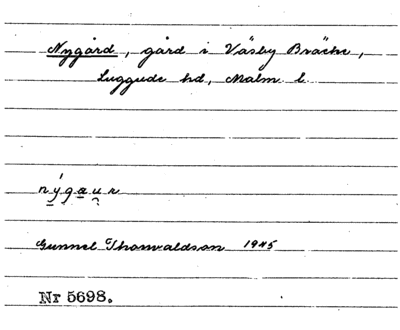 Nygård, gård i Väsby Bräcke,
Luggude hd, Malm. l.
nýgaur
Gunnel Thorvaldson 1945
Nr 5698.